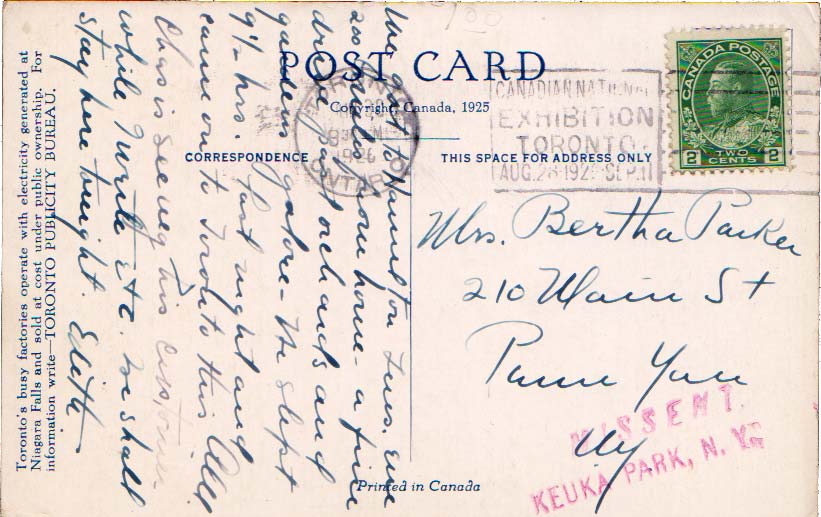 POST CARD
Copyright, Canada, 1925
CORRESPONDENCE
THIS SPACE FOR ADDRESS ONLY
CANADA POSTAGE
2 TWO CENTS 2
CANADIAN NATIONAL
EXHIBITION
TORONTO
AUG. 28 192 SEP. 11
TORONTO
1926
ONTARIO
We got to Hamilton Tues. Eve
200 miles from home - a fine
drive past orchards and
gardens galore - He slept
9½ hrs. last night and
came on to Toronto this A.M.
Chas is seeing his customer
while I write etc. We shall
stay here tonight. Edith
Mrs. Bertha Parker
210 Main St
Penn Yan
NY
MISSENT.
KEUKA PARK, N. Y.
Toronto's busy factories operate with electricity generated at
Niagara Falls and sold at cost under public ownership. For
information write—TORONTO PUBLICITY BUREAU.
Printed in Canada